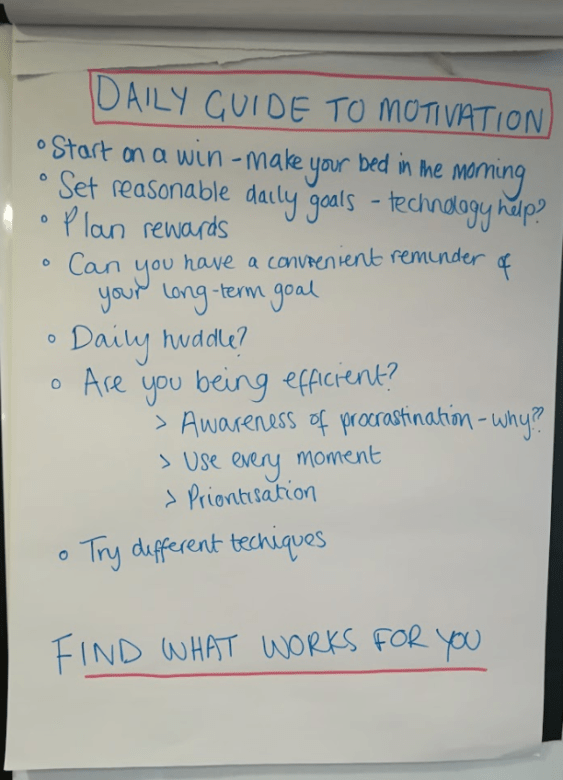 DAILY GUIDE TO MOTIVATION
° Start on a win - make your bed in the morning
° Set reasonable daily goals - technology help?
° Plan rewards
° Can you have a convenient reminder of
your long-term goal
° Daily huddle?
° Are you being efficient?
> Awareness of procrastination - why??
> Use every moment
> Prioritisation
° Try different techiques
FIND WHAT WORKS FOR YOU